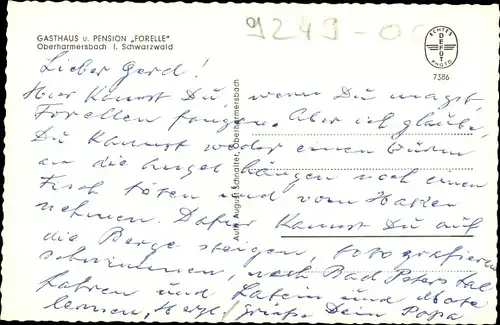 GASTHAUS u. PENSION „FORELLE"
Oberharmersbach i. Schwarzwald
9249-00
ECHTES
DEFOT
PHOTO
7386
Lieber Gerd!
Hier kannst Du, wenn Du magst,
Forellen fangen. Aber ich glaube,
Du kannst weder einen Wurm
an die Angel hängen noch einen
Fisch töten und vom Haken
nehmen. Dafür kannst Du auf
die Berge steigen, fotografieren
schwimmen, nach Bad Peterstal
fahren und Latein und Mathe
lernen. Herzl. Grüße Dein Papa
Aufn. August Schnaiter, Oberharmersbach